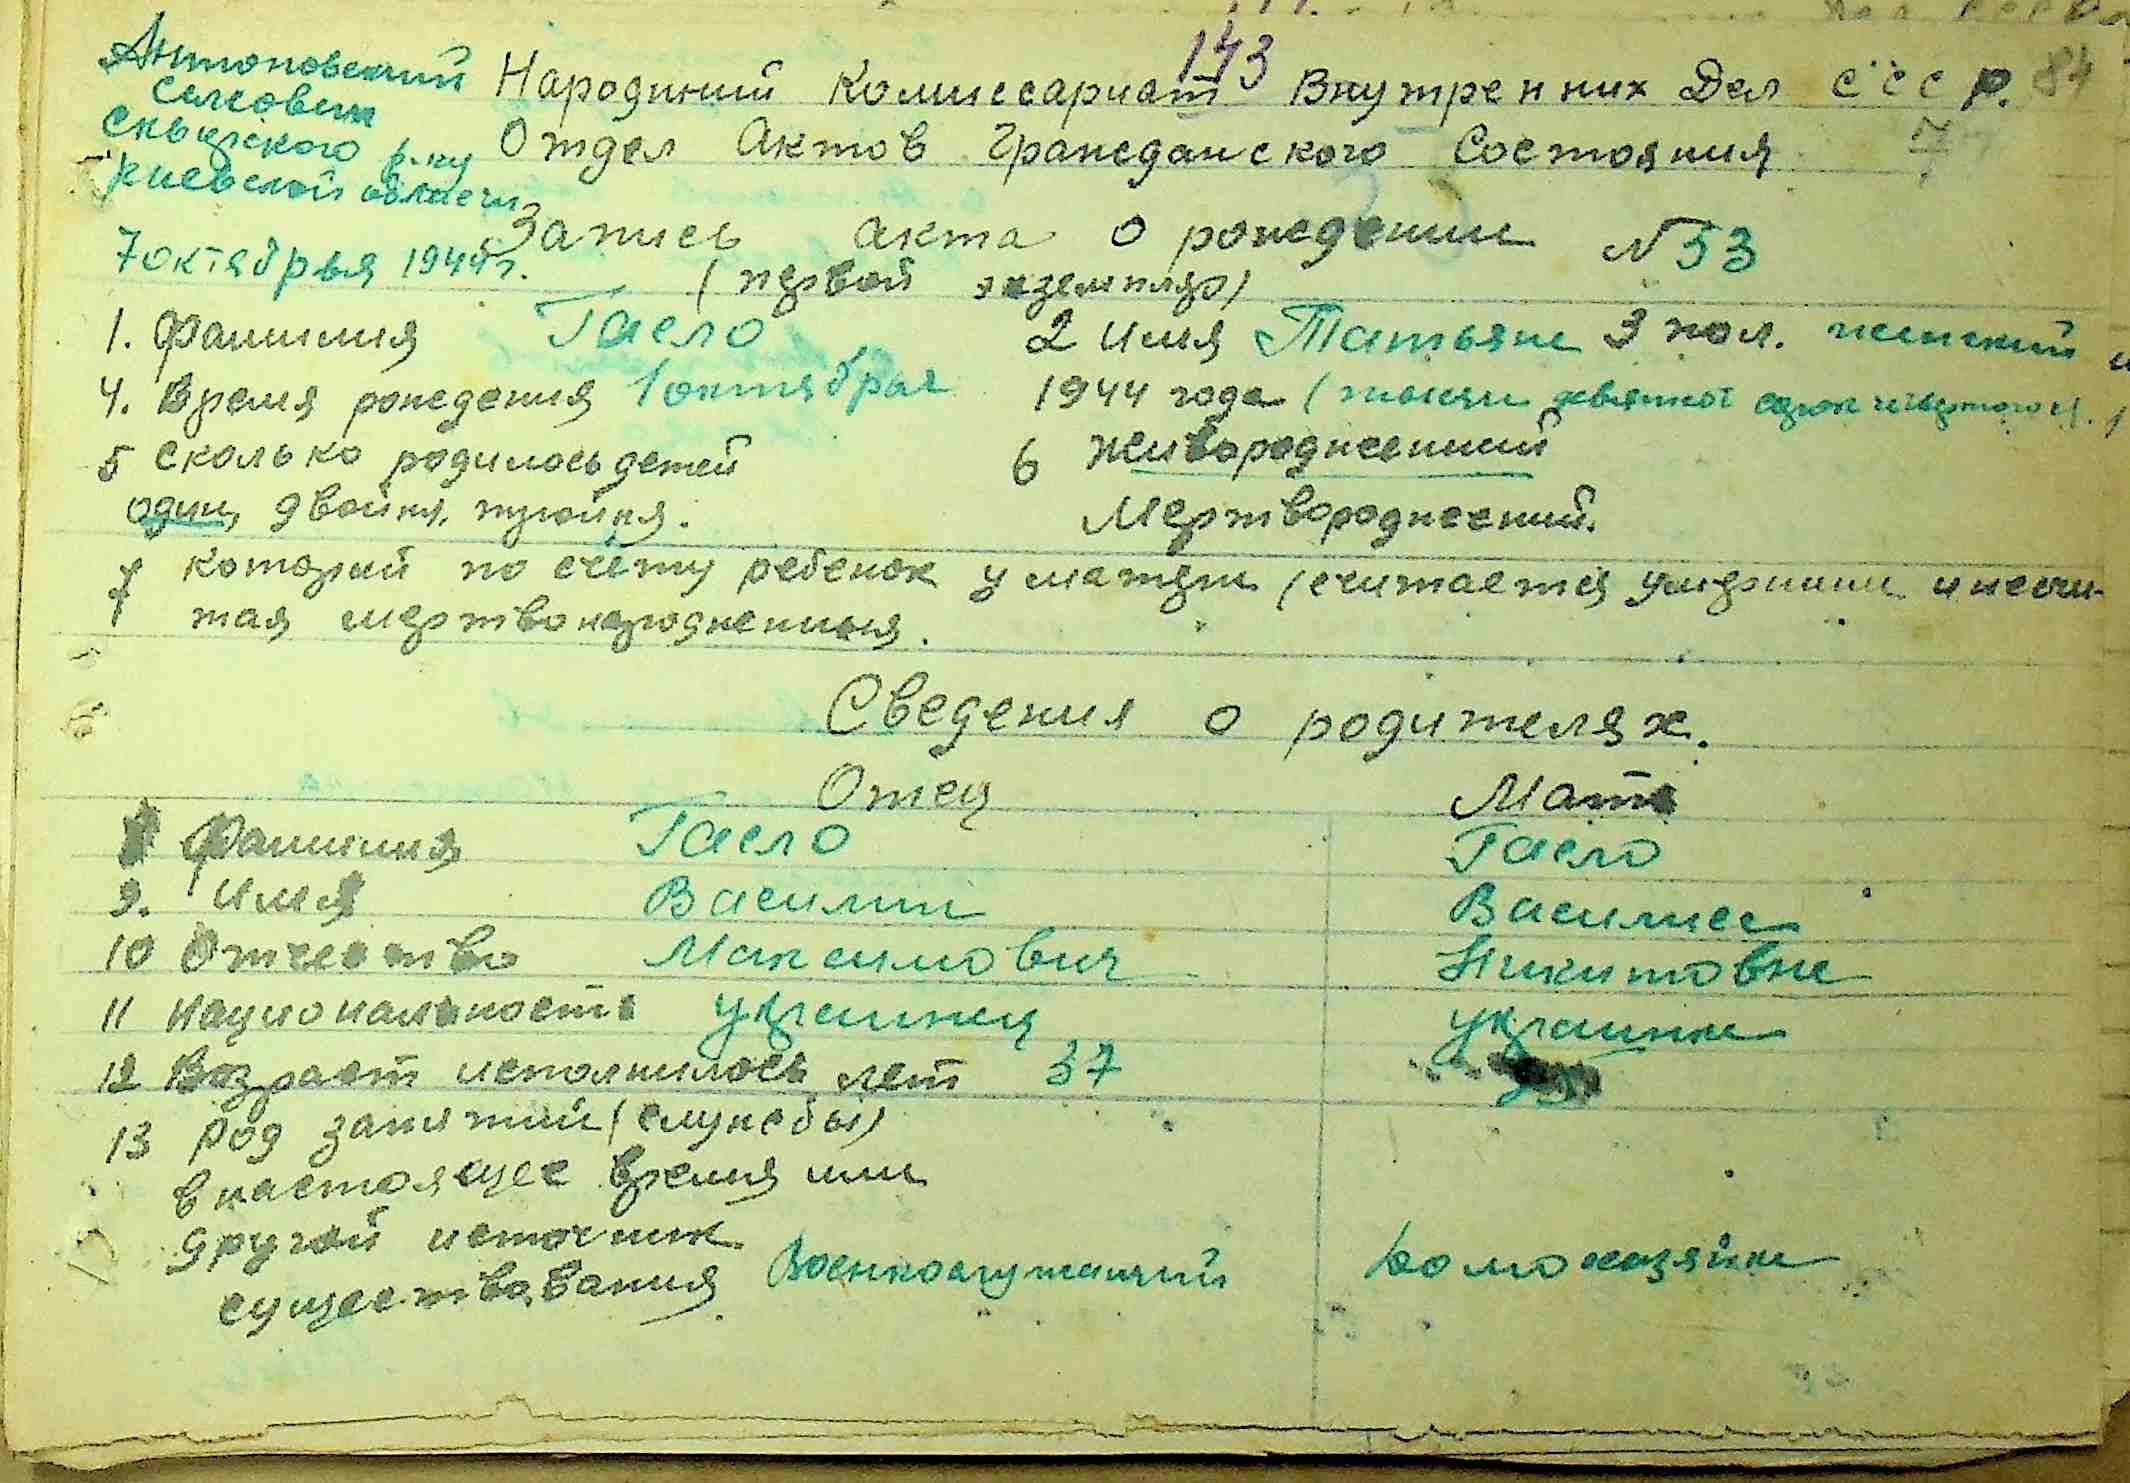 143
84
Антоповский
селсовет
Сквирского р-ну
Киевской области
7 октябрья 1944 г.
Народний Комиссариат Внутренних Дел СССР.
7
Отдел Актов Гражданского Состояния
Запись акта о рождении N 53
(первой экземпляр)
1. Фамилия Гасло 2 Имя Татьяна 3 пол. женский
4. Время рождения 1 октябрья 1944 года (тысяч девятсот сорок четвертого г.)
5 Сколько родилось детей 6 Живорожденний
один, двойня, тройня. Мертворожденний.
7 который по счёту ребенок у матери (считается умершими и несчи-
тая мертворожденния.
Сведения о родителях.
Отец Мать
8 Фамилия Гасло Гасло
9. Имя Василий Василиса
10 Отчество Максимович Никитовна
11 Национальность украинец украинка
12 Возраст исполнилось лет 37
13 Род занятий (службы)
в настоящее время или
другой источник
существования Военнослужащий домохозяйка